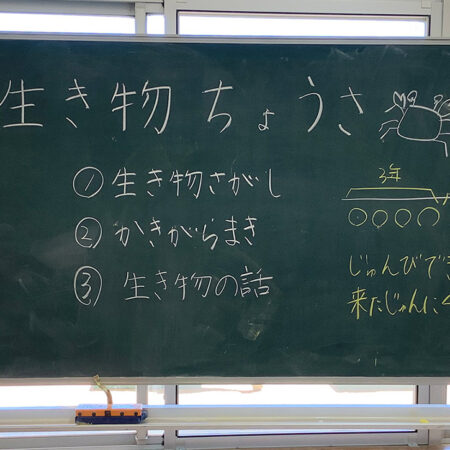 生き物ちょうさ
① 生き物さがし
② かきがらまき
③ 生き物の話
3年
じゅんびでき
来たじゅんに